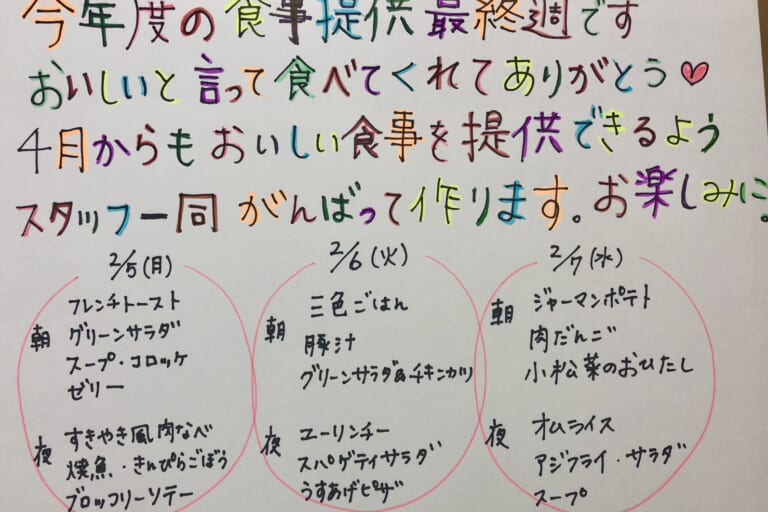 今年度の食事提供最終週です
おいしいと言って食べてくれてありがとう♡
4月からもおいしい食事を提供できるよう
スタッフ一同 がんばって作ります。お楽しみに。
2/5(月)
朝 フレンチトースト
グリーンサラダ
スープ・コロッケ
ゼリー
夜 すきやき風肉なべ
焼魚・きんぴらごぼう
ブロッコリーソテー
2/6(火)
朝 三色ごはん
豚汁
グリーンサラダ&チキンカツ
夜 ユーリンチー
スパゲティサラダ
うすあげピザ
2/7(水)
朝 ジャーマンポテト
肉だんご
小松菜のおひたし
夜 オムライス
アジフライ・サラダ
スープ